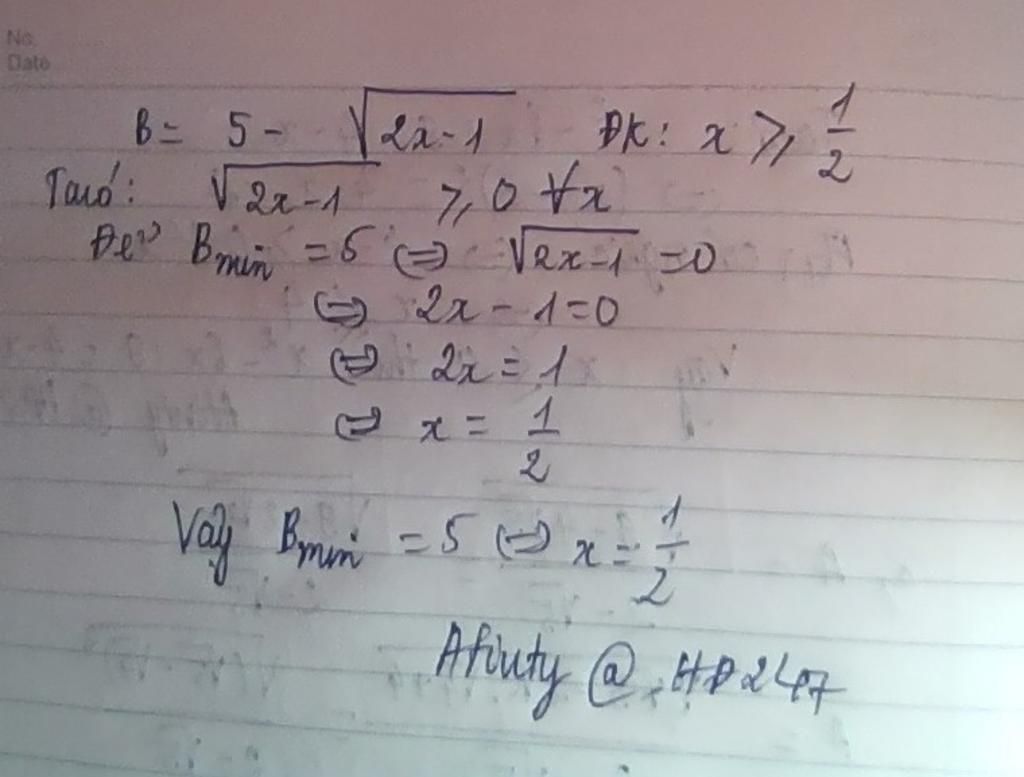 No.
Date
B = 5 - √(2x-1) ĐK: x ≥ 1/2
Ta có: √(2x-1) ≥ 0 ∀x
Để Bmin = 5 ⇔ √(2x-1) = 0
⇔ 2x - 1 = 0
⇔ 2x = 1
⇔ x = 1/2
Vậy Bmin = 5 ⇔ x = 1/2
@